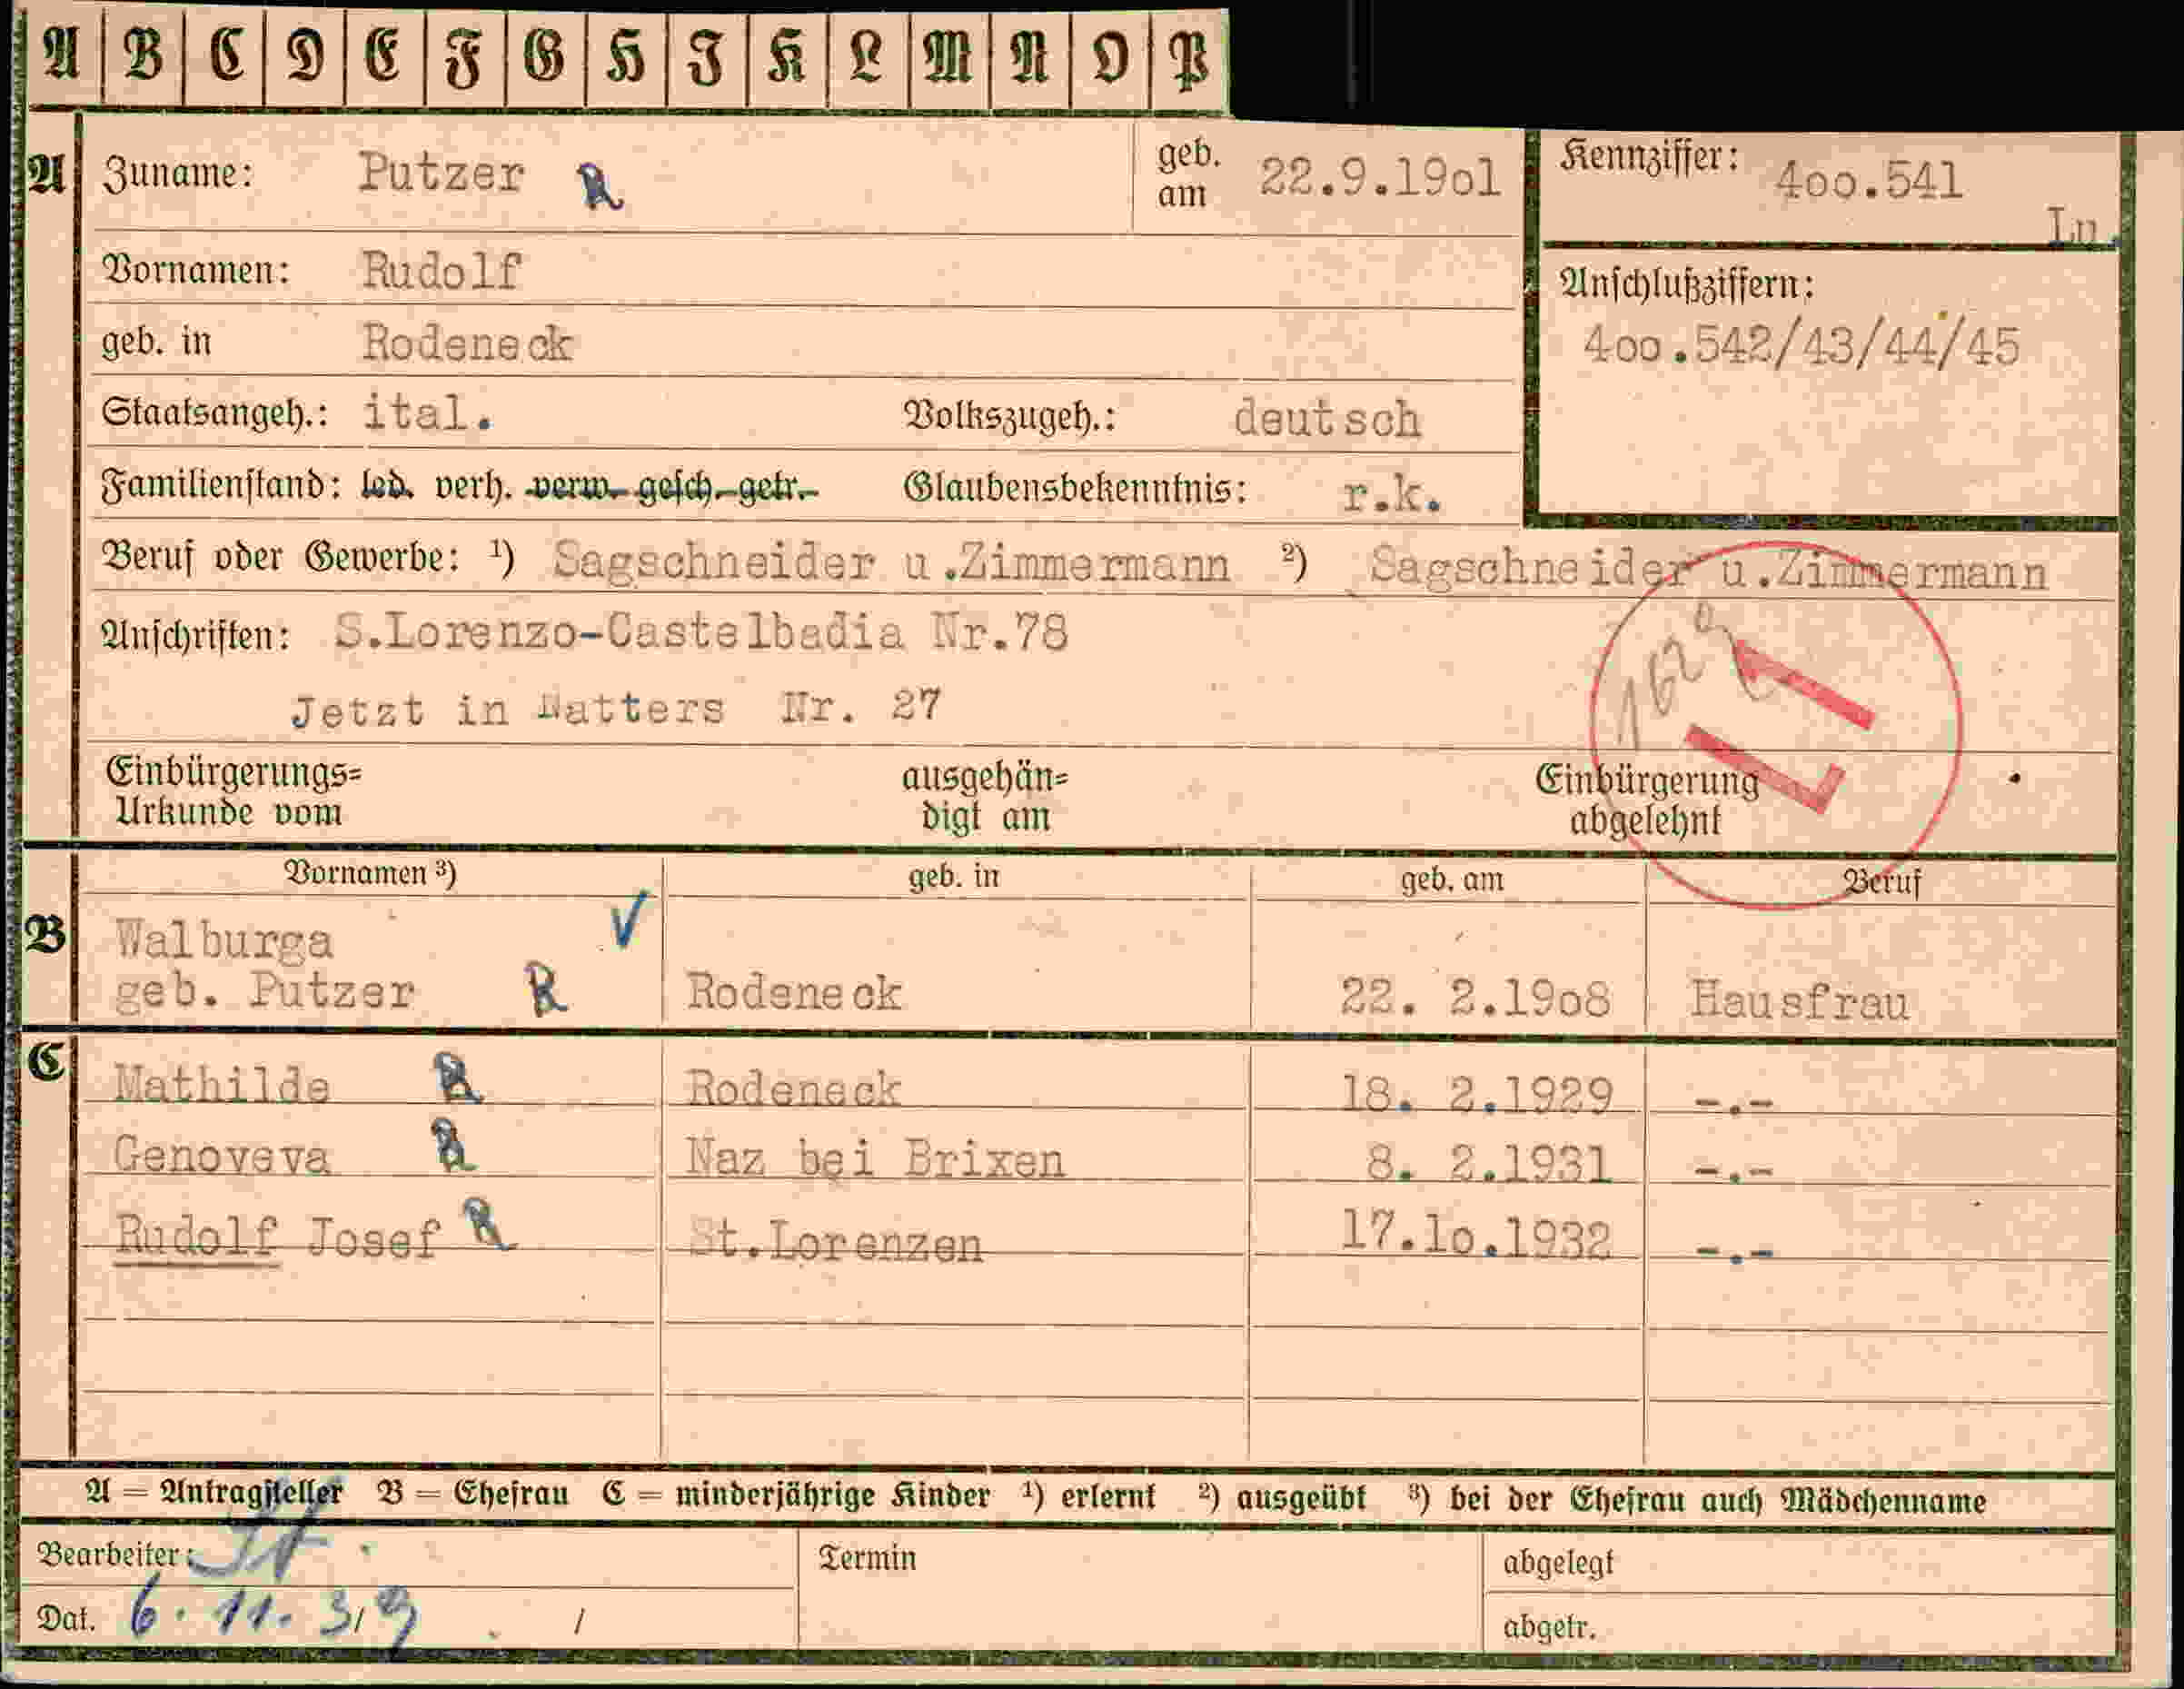 A B C D E F G H I K L M N O P
A Zuname: Putzer R geb. am 22.9.19o1 Kennziffer: 4oo.541
Ln.
Vornamen: Rudolf Anschlußziffern:
geb. in Rodeneck 4oo.542/43/44/45
Staatsangeh.: ital. Volkszugeh.: deutsch
Familienstand: led. verh. verw. gesch. getr. Glaubensbekenntnis: r.k.
Beruf oder Gewerbe: ¹) Sagschneider u.Zimmermann ²) Sagschneider u.Zimmermann
Anschriften: S.Lorenzo-Castelbadia Nr.78
Jetzt in Natters Nr. 27
Einbürgerungs= Urkunde vom ausgehän= digt am Einbürgerung abgelehnt
Vornamen ³) geb. in geb. am Beruf
B Walburga
geb. Putzer R Rodeneck 22. 2.19o8 Hausfrau
C Mathilde R Rodeneck 18. 2.1929 -.-
Genoveva R Naz bei Brixen 8. 2.1931 -.-
Rudolf Josef R St.Lorenzen 17.1o.1932 -.-
A = Antragsteller B = Ehefrau C = minderjährige Kinder ¹) erlernt ²) ausgeübt ³) bei der Ehefrau auch Mädchenname
Bearbeiter: Termin abgelegt
Dat. 6. 11. 39 abgetr.